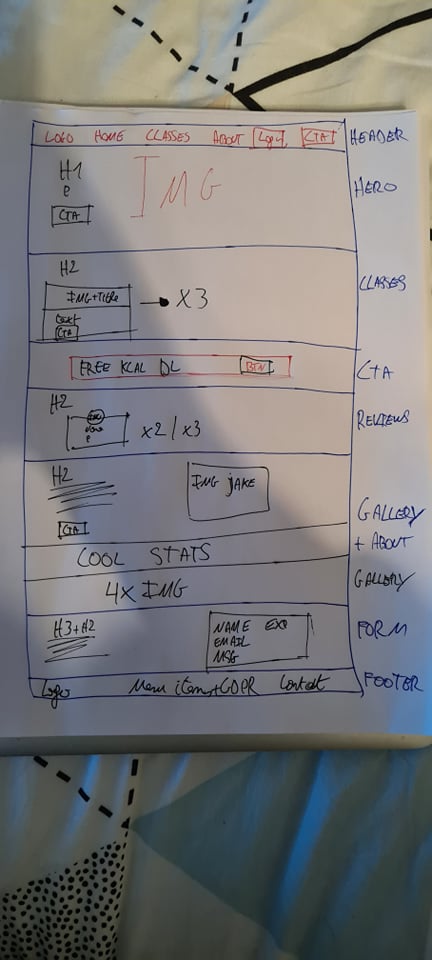 LOGO HOME CLASSES ABOUT Login CTA HEADER
H1
P
CTA
IMG
HERO
H2
IMG+TITLE
text
CTA
X3
CLASSES
FREE KCAL DL BTN
CTA
H2
IMG
P
X2 / X3
REVIEWS
H2
CTA
IMG JAKE
GALLERY
+ ABOUT
COOL STATS
4X IMG
GALLERY
H3+H2
NAME EXP
EMAIL
MSG
FORM
Logo Menu items+GDPR Contact FOOTER